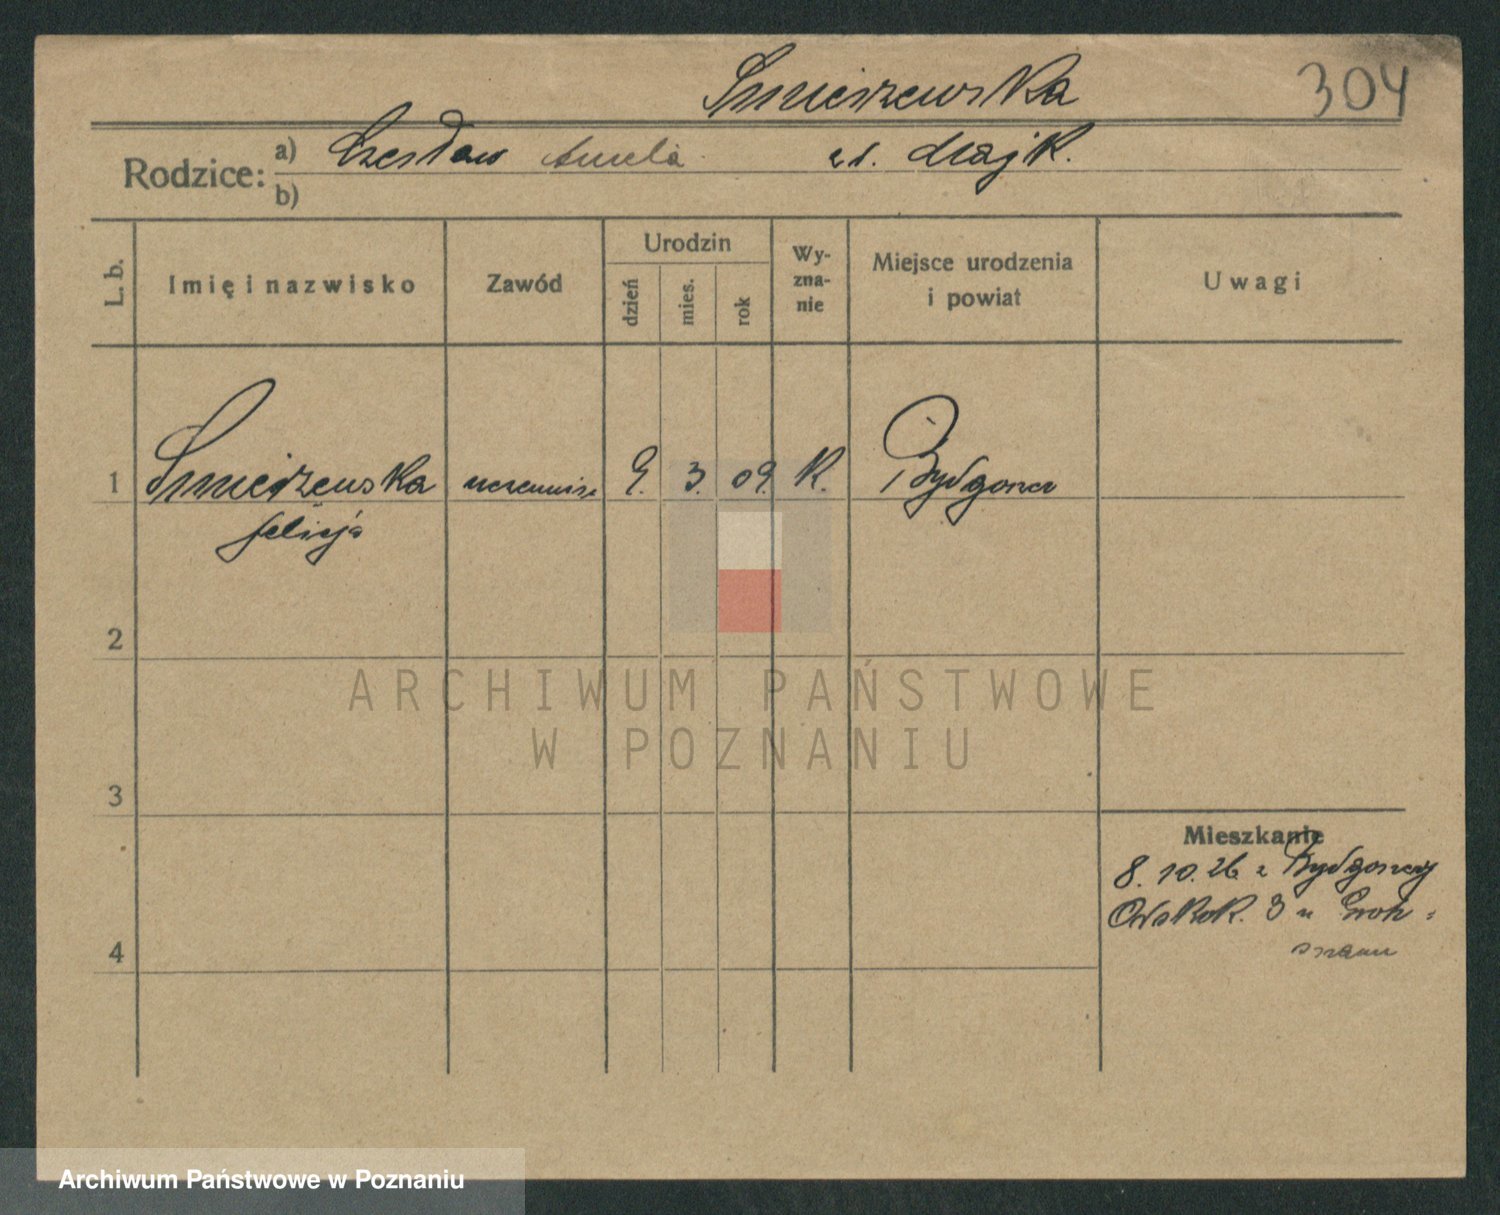 Śmieszewska
304
Rodzice: a) Czesław Aurela z d. Majk.
b)
L. b.
Imię i nazwisko
Zawód
Urodzin
dzień
mies.
rok
Wy-
zna-
nie
Miejsce urodzenia
i powiat
Uwagi
1 uczennica 9. 3. 09. K. Bydgoszcz
Felicja
2
3
4
Mieszkanie
8. 10. 26 z Bydgoszczy
3 u
ARCHIWUM PAŃSTWOWE
W POZNANIU
Archiwum Państwowe w Poznaniu